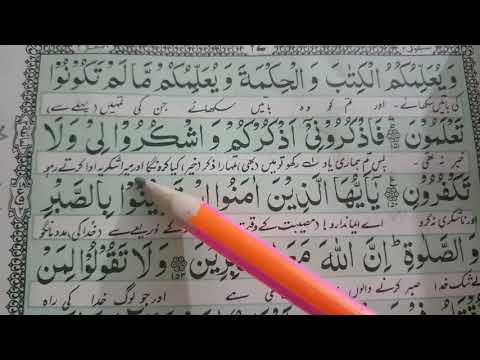 وَيُعَلِّمُكُمُ الْكِتٰبَ وَالْحِكْمَةَ وَيُعَلِّمُكُمْ مَّا لَمْ تَكُوْنُوْا
کی باتیں سکھاتے۔ اور تم کو وہ باتیں سکھاتے جن کی تمہیں (پہلے سے)
تَعْلَمُوْنَ ۝ فَاذْكُرُوْنِيْٓ اَذْكُرْكُمْ وَاشْكُرُوْا لِيْ وَلَا
خبر نہ تھی۔ پس تم ہماری یاد میں لگو تو میں (بھی) تمہارا ذکر (خیر) کیا کروں گا اور میرا شکریہ ادا کرتے رہو
تَكْفُرُوْنِ ۝ يٰٓاَيُّهَا الَّذِيْنَ اٰمَنُوا بِالصَّبْرِ
اور ناشکری نہ کرو اے ایماندارو مصیبت کے وقت کے ذریعے سے (خدا کی) مدد مانگو
وَالصَّلٰوةِ ؕ اِنَّ اللّٰهَ مَعَ وَلَا تَقُوْلُوْا لِمَنْ
بے شک خدا صبر کرنے والوں ہے اور جو لوگ خدا کی راہ